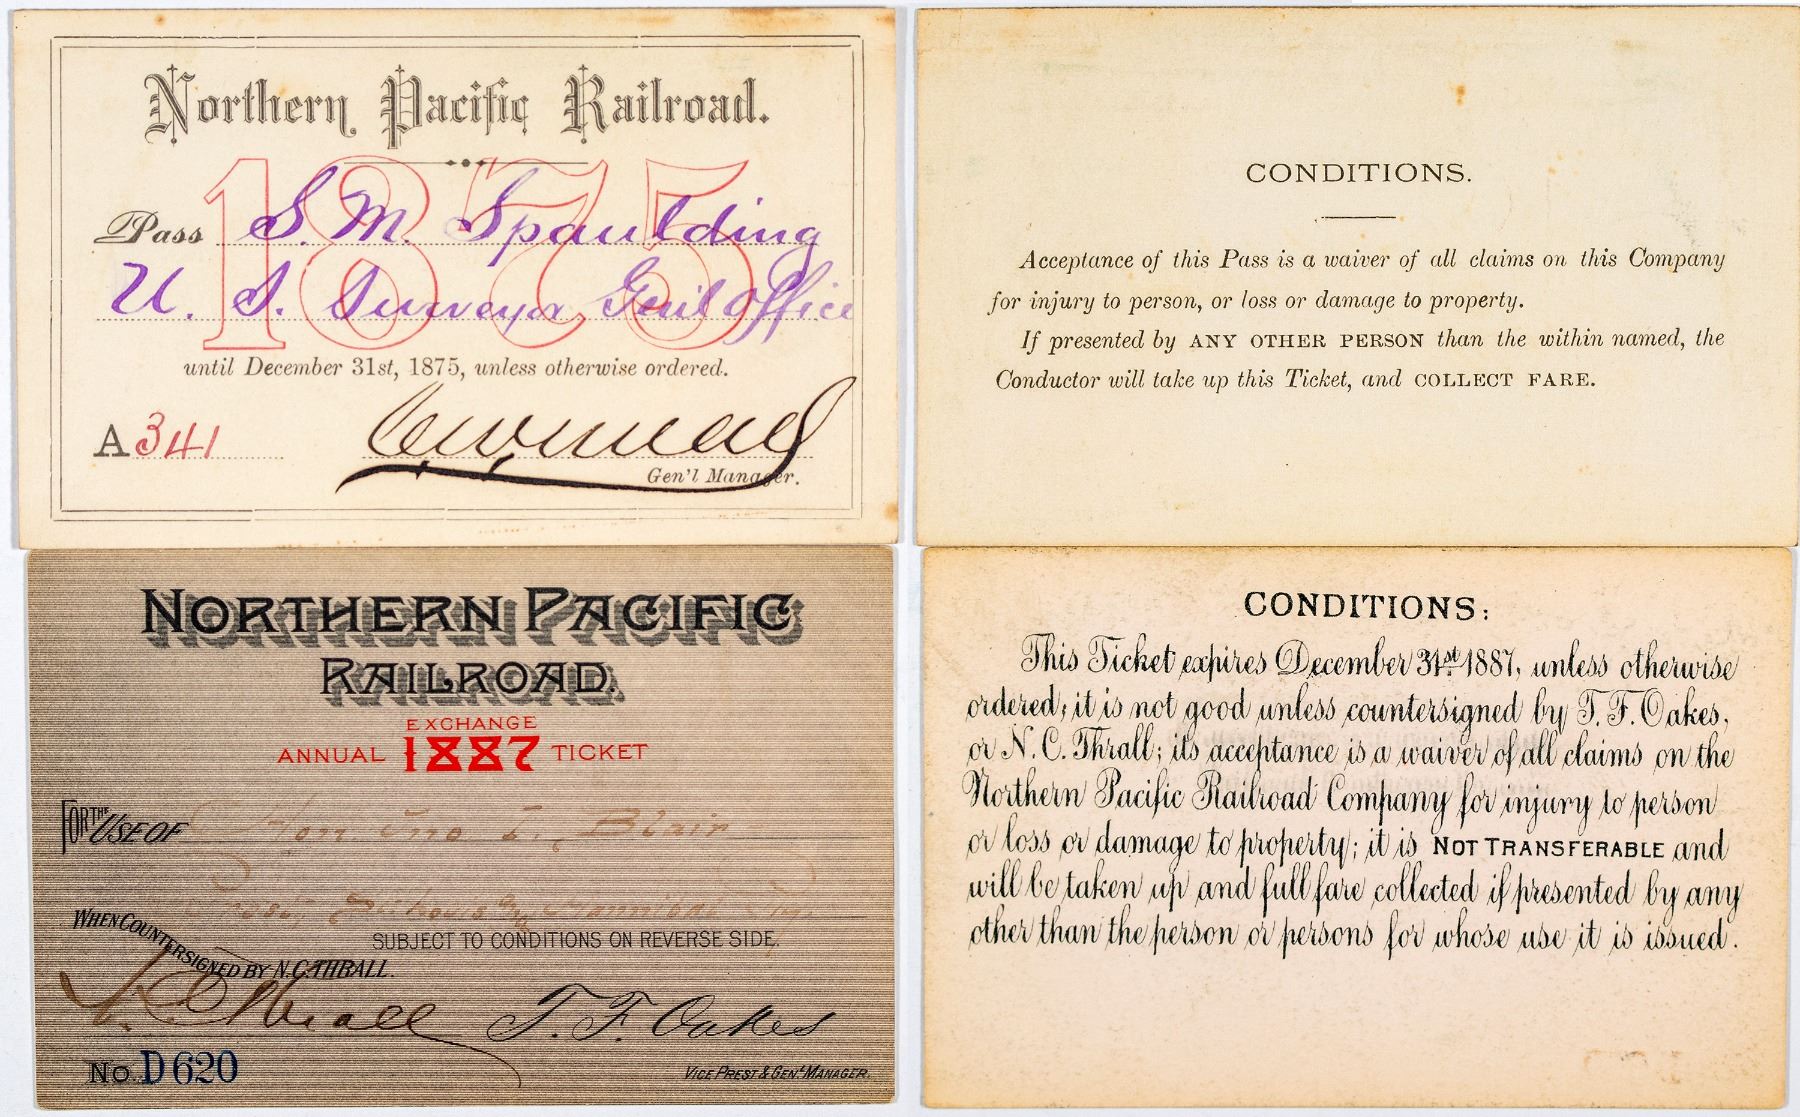 Northern Pacific Railroad.
1875
Pass S. M. Spaulding
U. S. Surveyor Genl Office
until December 31st, 1875, unless otherwise ordered.
A 341
Gen'l Manager.
CONDITIONS.
Acceptance of this Pass is a waiver of all claims on this Company
for injury to person, or loss or damage to property.
If presented by ANY OTHER PERSON than the within named, the
Conductor will take up this Ticket, and COLLECT FARE.
NORTHERN PACIFIC
RAILROAD.
EXCHANGE
ANNUAL 1887 TICKET
FOR THE USE OF Hon. Jno I. Blair
Hannibal
WHEN COUNTERSIGNED BY N.C. THRALL.
SUBJECT TO CONDITIONS ON REVERSE SIDE.
N. C. Thrall T. F. Oakes
No. D620
VICE PREST & GENL MANAGER.
CONDITIONS:
This Ticket expires December 31st 1887, unless otherwise
ordered; it is not good unless countersigned by T. F. Oakes,
or N. C. Thrall; its acceptance is a waiver of all claims on the
Northern Pacific Railroad Company for injury to person
or loss or damage to property; it is NOT TRANSFERABLE and
will be taken up and full fare collected if presented by any
other than the person or persons for whose use it is issued.